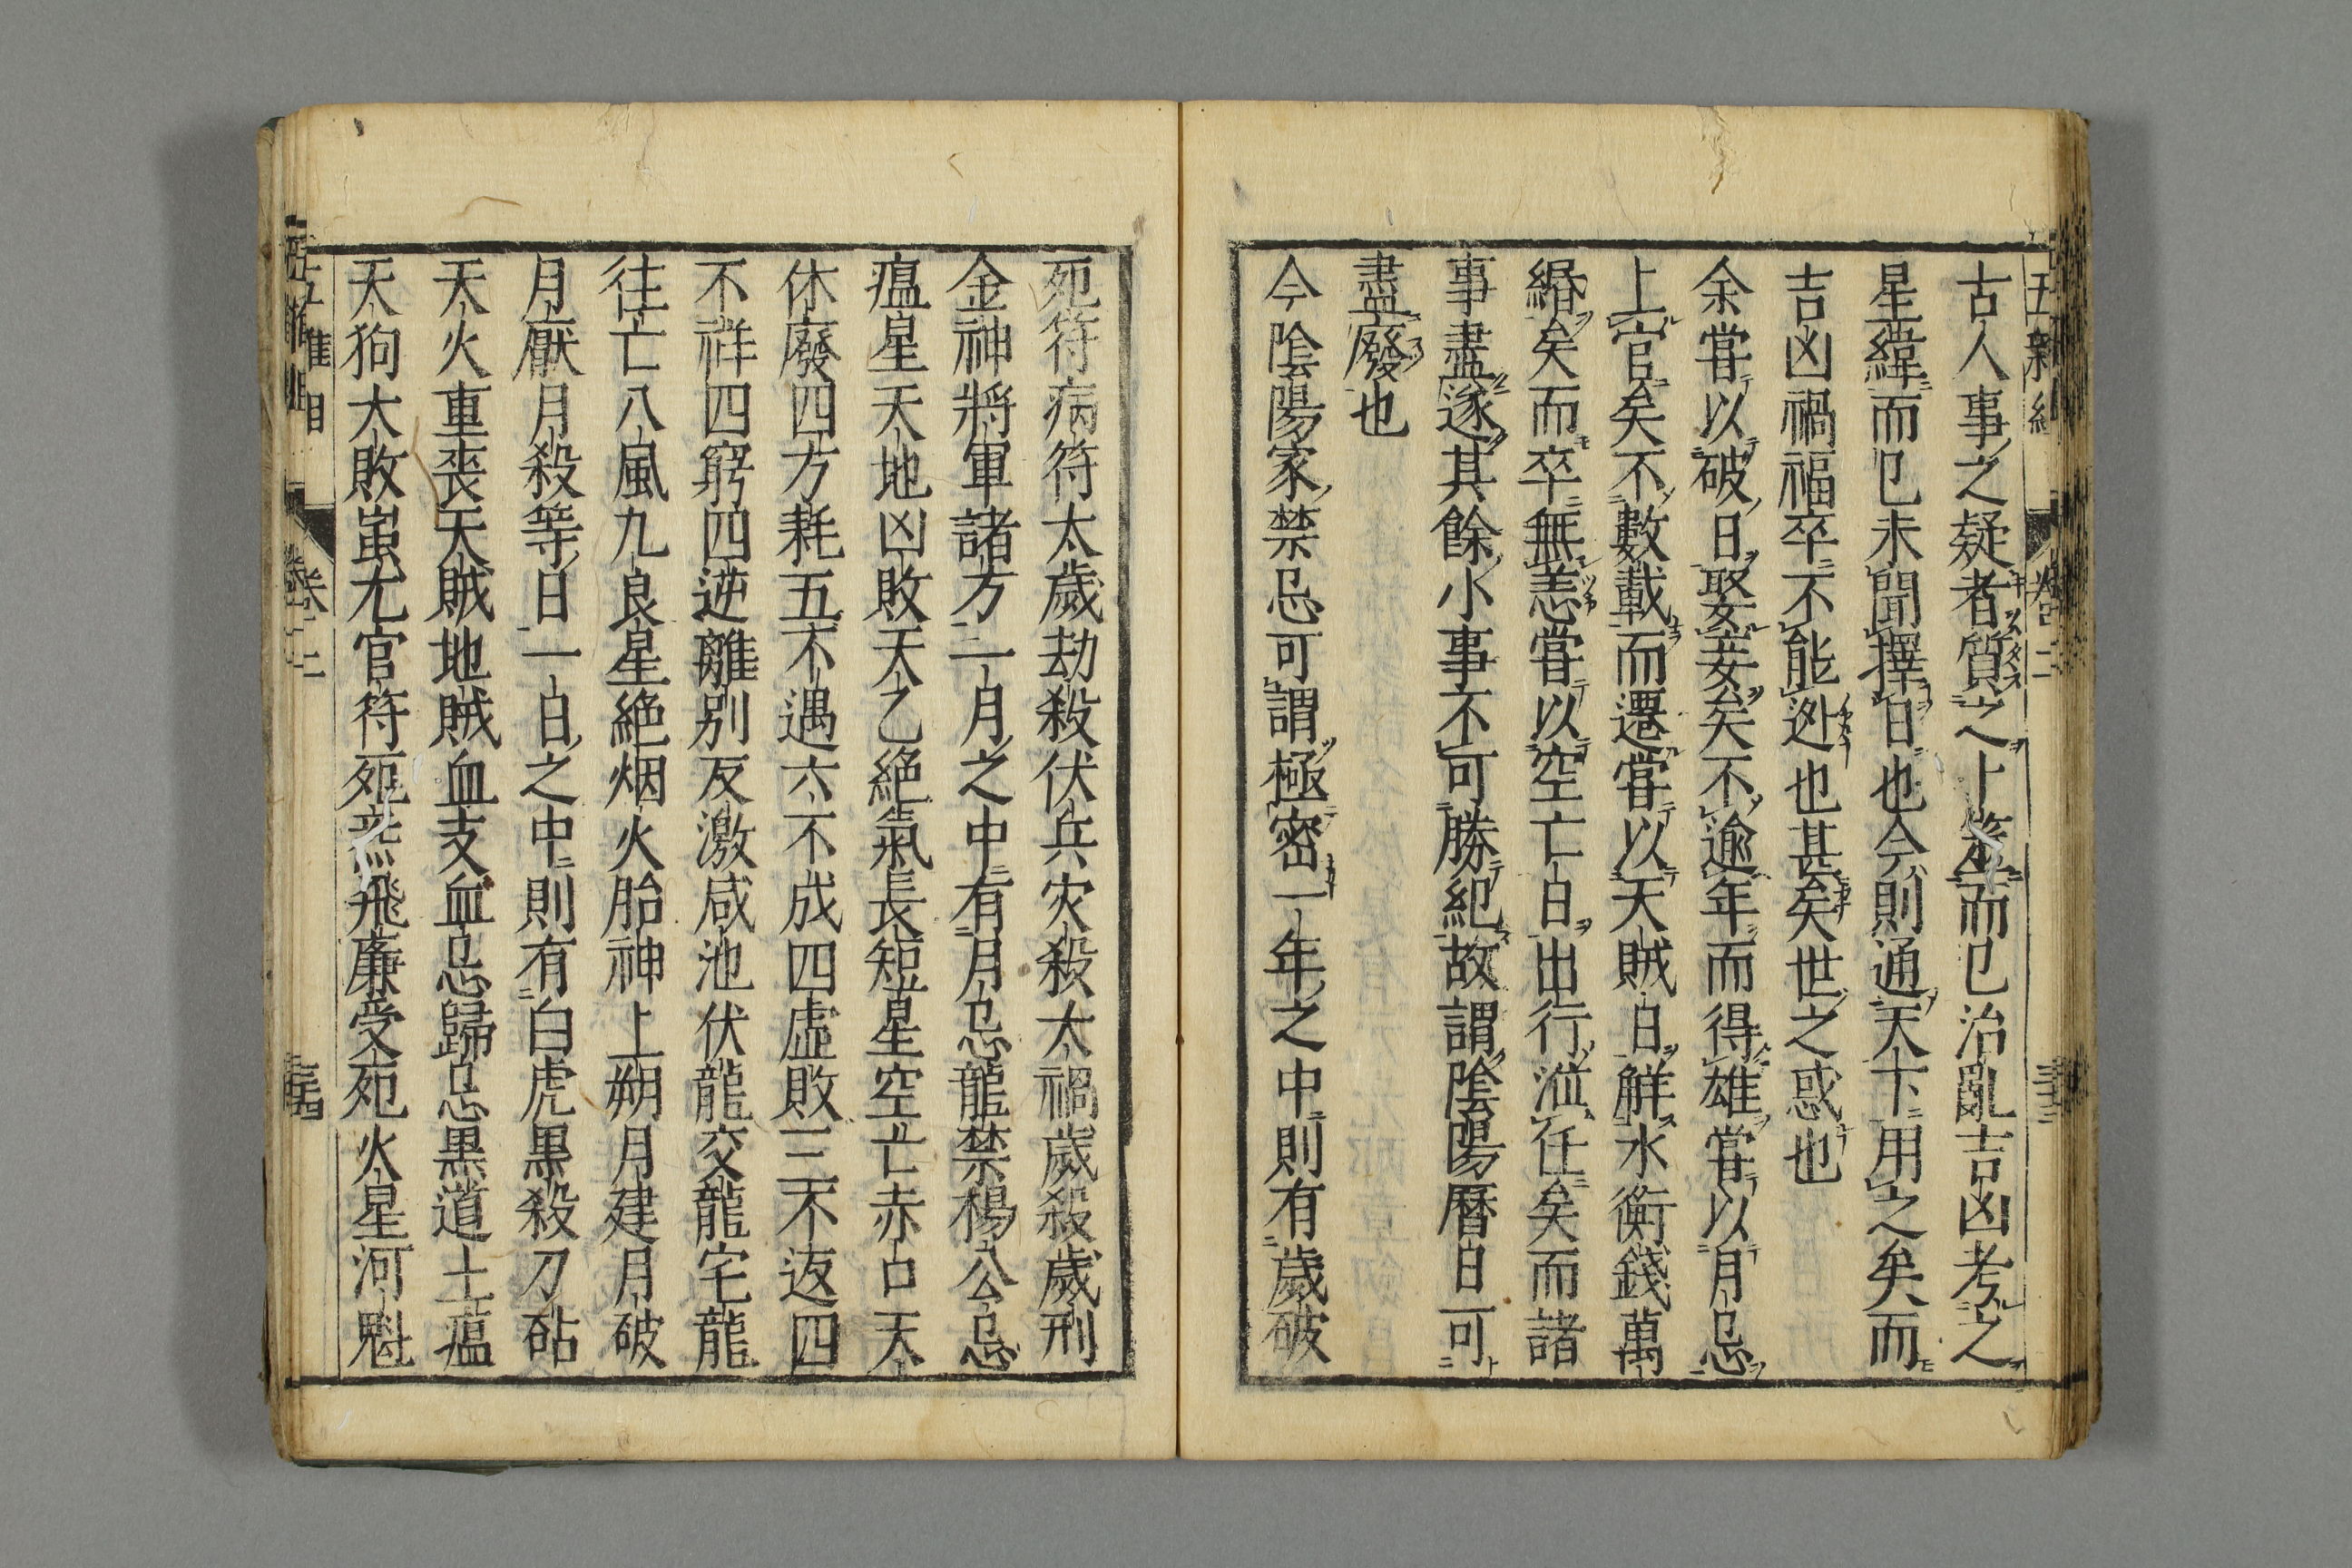 古人事之疑者質之卜筮而已治亂吉凶考之
星緯而已未聞擇日也今則通天下用之矣而
吉凶禍福卒不能逃也甚矣世之惑也
余嘗以破日娶妾矣不逾年而得雄嘗以月忌
上官矣不數載而遷嘗以天賊日解水衡錢萬
緡矣而卒無恙嘗以空亡日出行涖任矣而諸
事盡遂其餘小事不可勝紀故謂陰陽曆日可
盡廢也
今陰陽家禁忌可謂極密一年之中則有歲破
死符病符太歲劫殺伏兵灾殺大禍歲殺歲刑
金神將軍諸方一月之中有月忌龍禁楊公忌
瘟星天地凶敗天乙絕氣長短星空亡赤口天
休廢四方耗五不遇六不成四虛敗三不返四
不祥四窮四逆離別反激咸池伏龍交龍宅龍
往亡八風九良星絕烟火胎神上朔月建月破
月厭月殺等日一日之中則有白虎黑殺刀砧
天火重喪天賊地賊血支血忌歸忌黑道土瘟
天狗大敗蚩尤官符死炁飛廉受死火星河魁
卷二